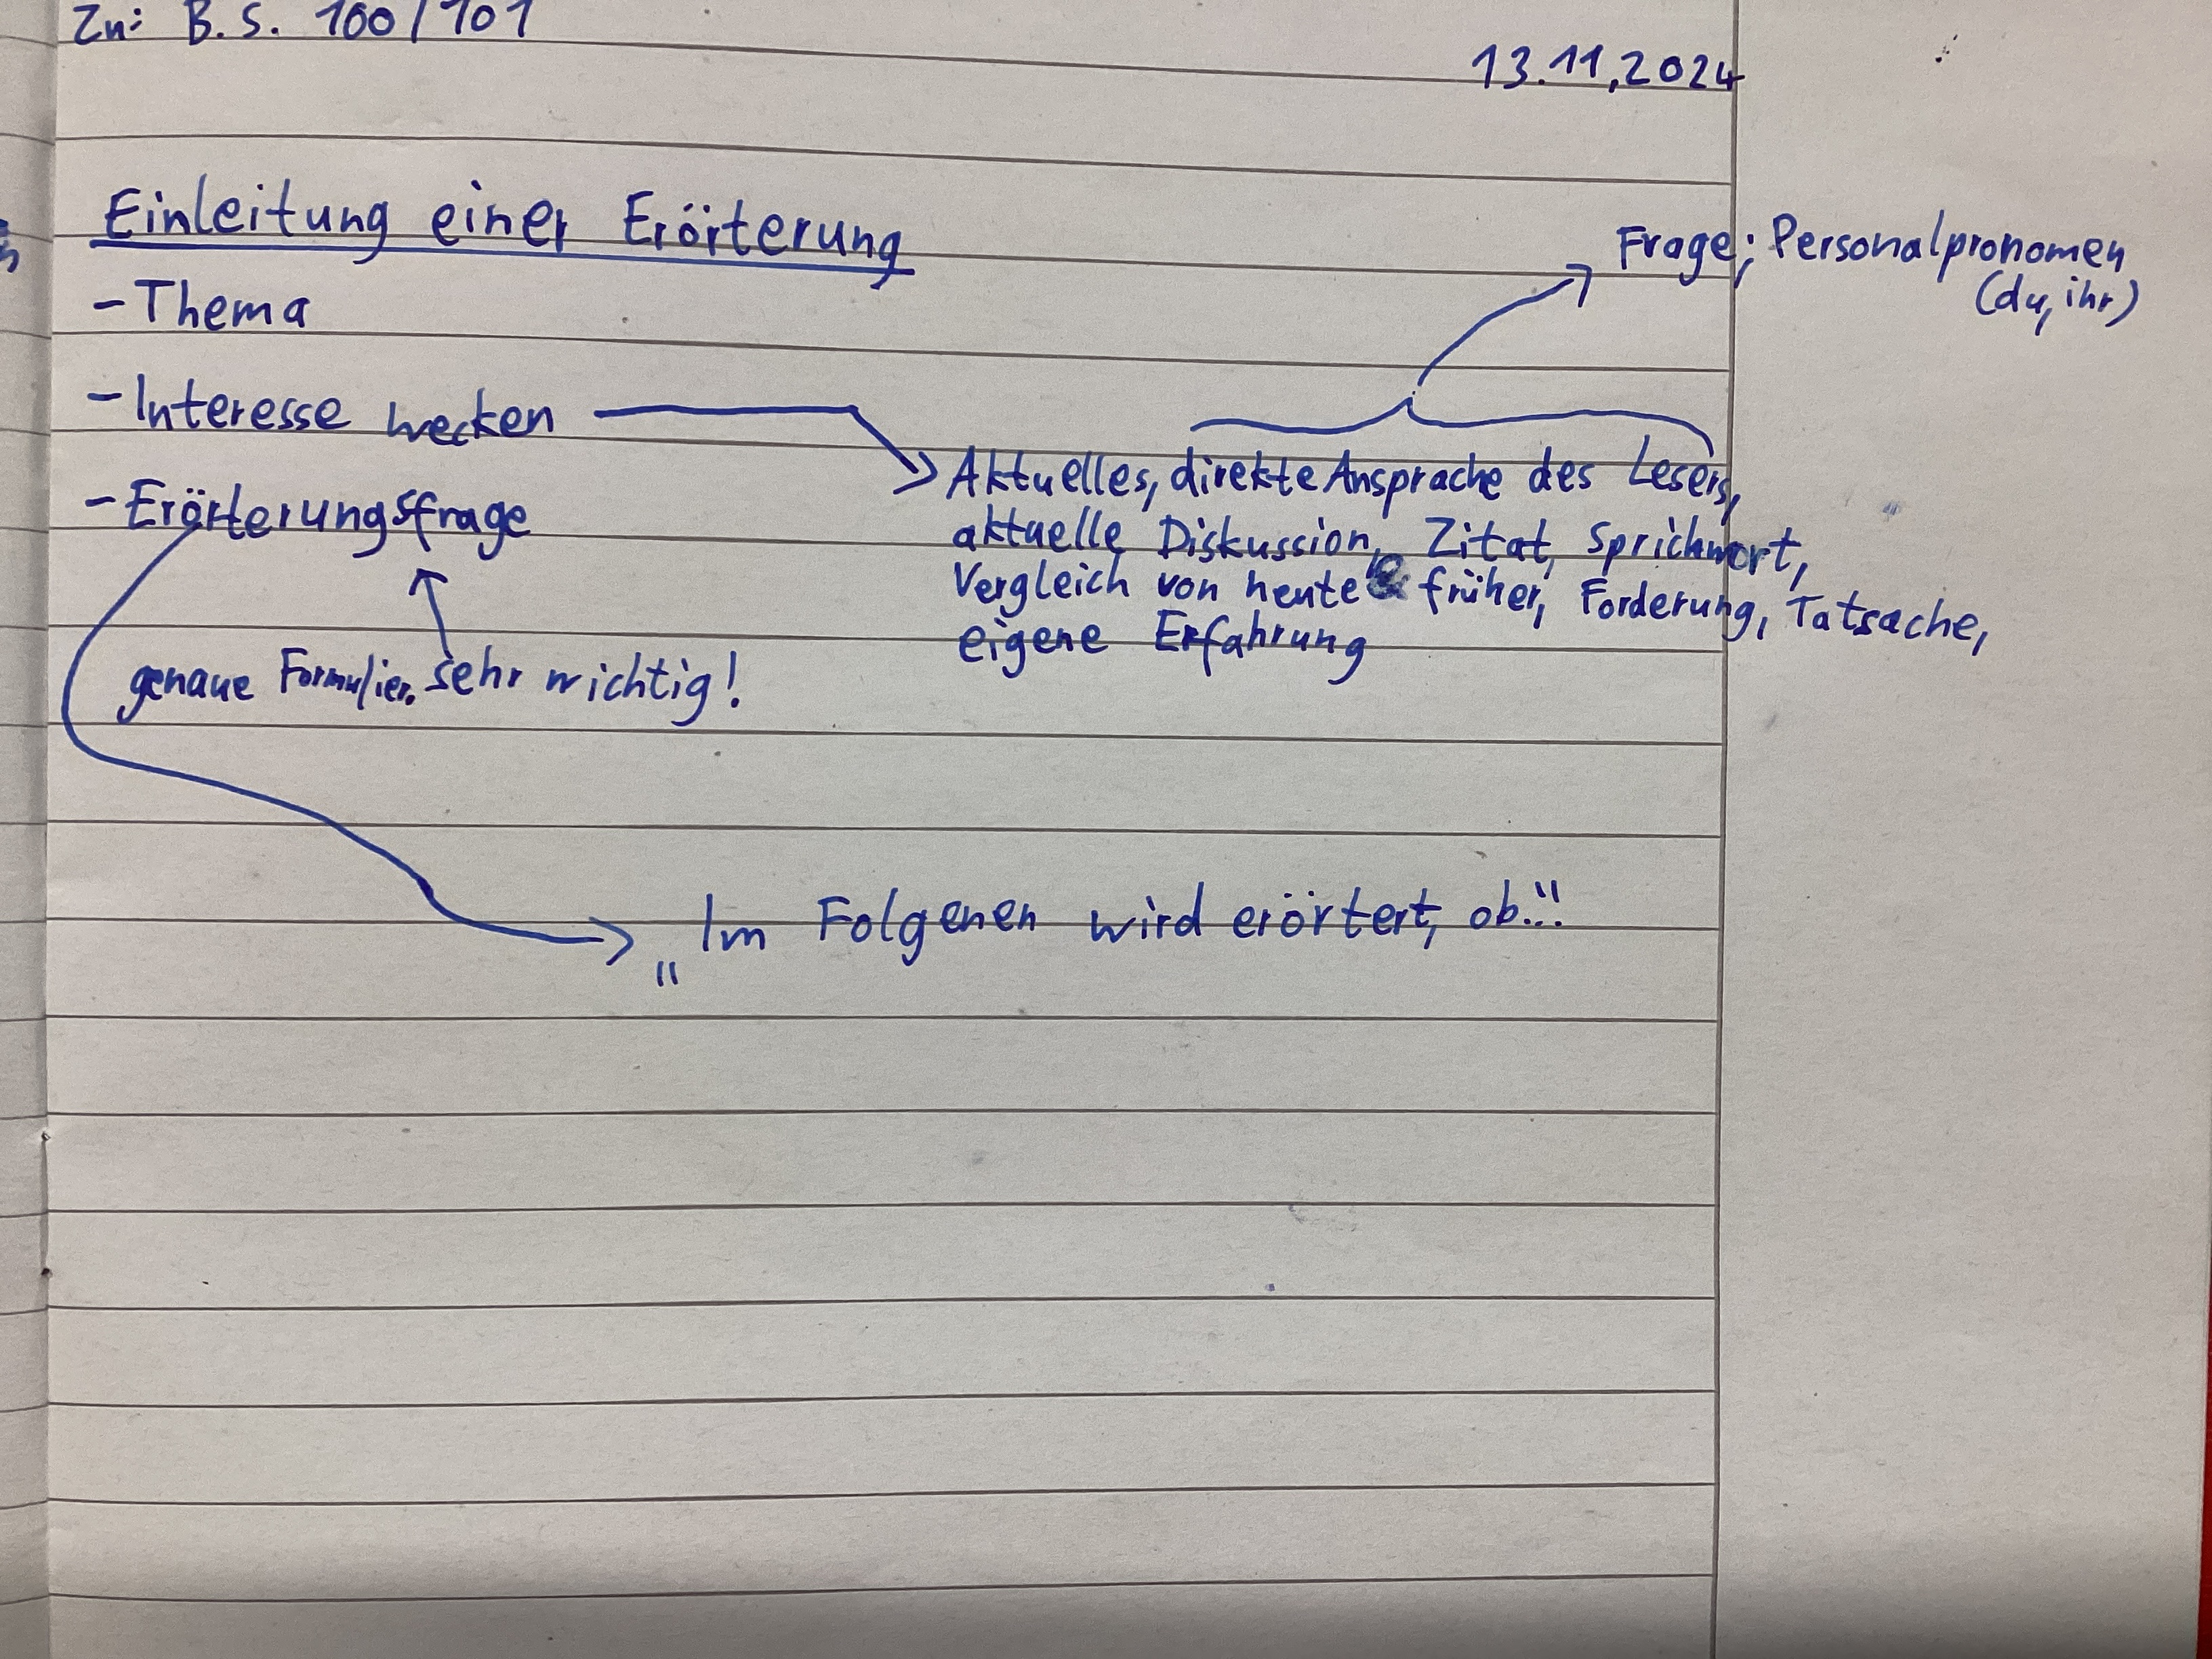 Zu: B. S. 100/101
13.11.2024
Einleitung einer Erörterung
Frage; Personalpronomen
(du, ihr)
- Thema
- Interesse wecken
Aktuelles, direkte Ansprache des Lesers,
aktuelle Diskussion, Zitat, Sprichwort,
Vergleich von heute & früher, Forderung, Tatsache,
eigene Erfahrung
- Erörterungsfrage
genaue Formulier. sehr wichtig!
„Im Folgenen wird erörtert, ob..."